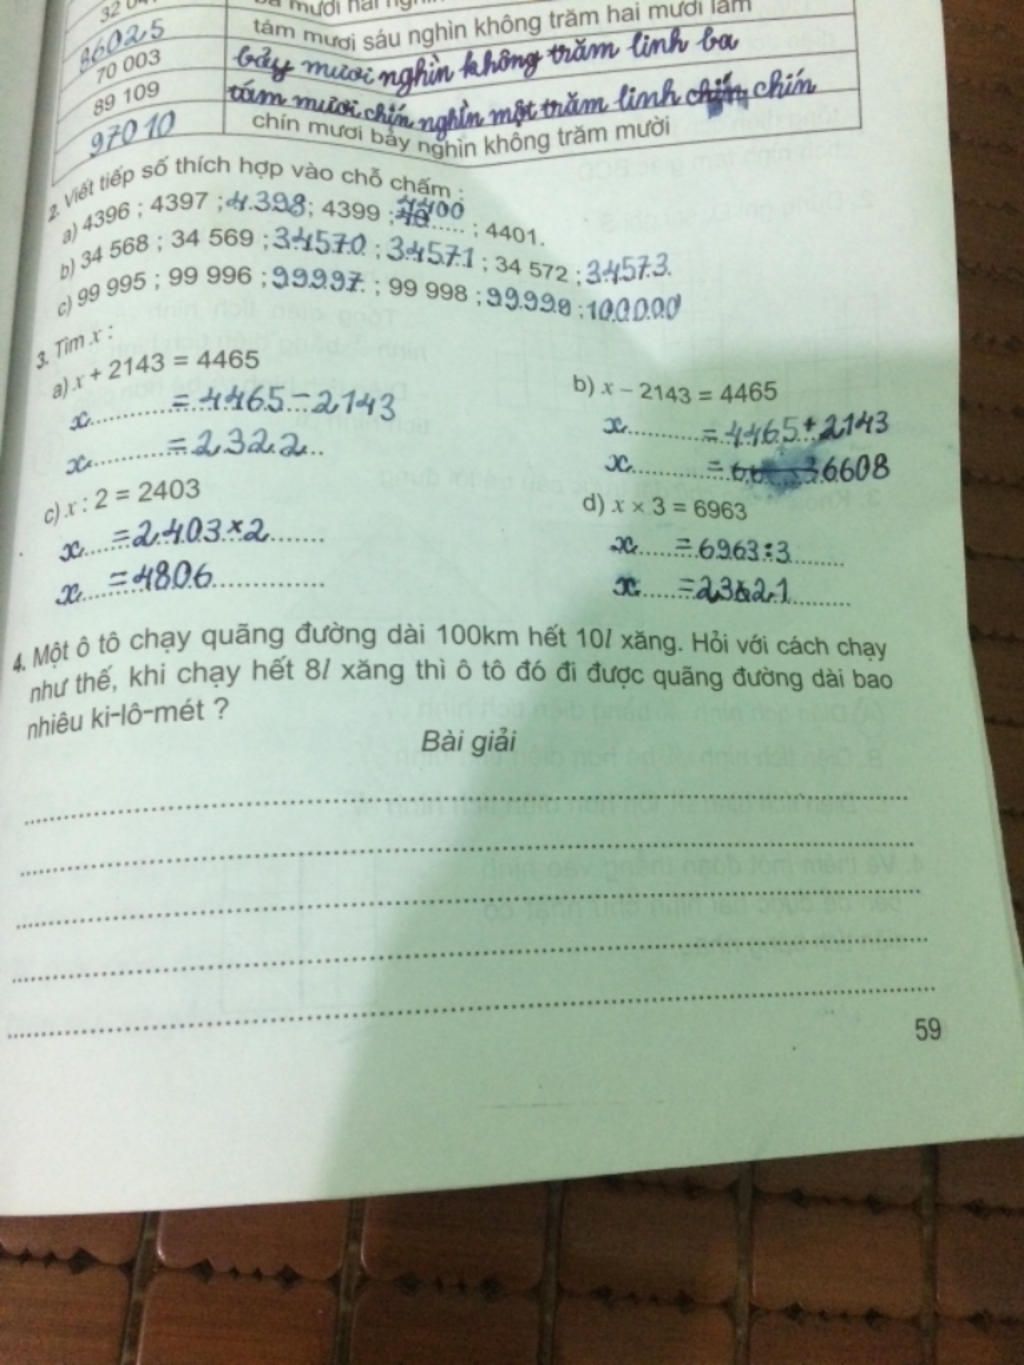 32 04
mươi hai
86025 tám mươi sáu nghìn không trăm hai mươi lăm
70 003 bảy mươi nghìn không trăm linh ba
89 109 tám mươi chín nghìn một trăm linh chín chín
97010 chín mươi bảy nghìn không trăm mười
2. Viết tiếp số thích hợp vào chỗ chấm :
a) 4396 ; 4397 ; 4398 ; 4399 ; 4400 ..... ; 4401.
b) 34 568 ; 34 569 ; 34570 ; 34571 ; 34 572 ; 34573.
c) 99 995 ; 99 996 ; 99997 ; 99 998 ; 99999 ; 100000
3. Tìm x :
a) x + 2143 = 4465
x = 4465 - 2143
x = 2322
b) x - 2143 = 4465
x = 4465 + 2143
x = 6608
c) x : 2 = 2403
x = 2403 × 2
x = 4806
d) x × 3 = 6963
x = 6963 : 3
x = 2321
4. Một ô tô chạy quãng đường dài 100km hết 10l xăng. Hỏi với cách chạy
như thế, khi chạy hết 8l xăng thì ô tô đó đi được quãng đường dài bao
nhiêu ki-lô-mét ?
Bài giải
59